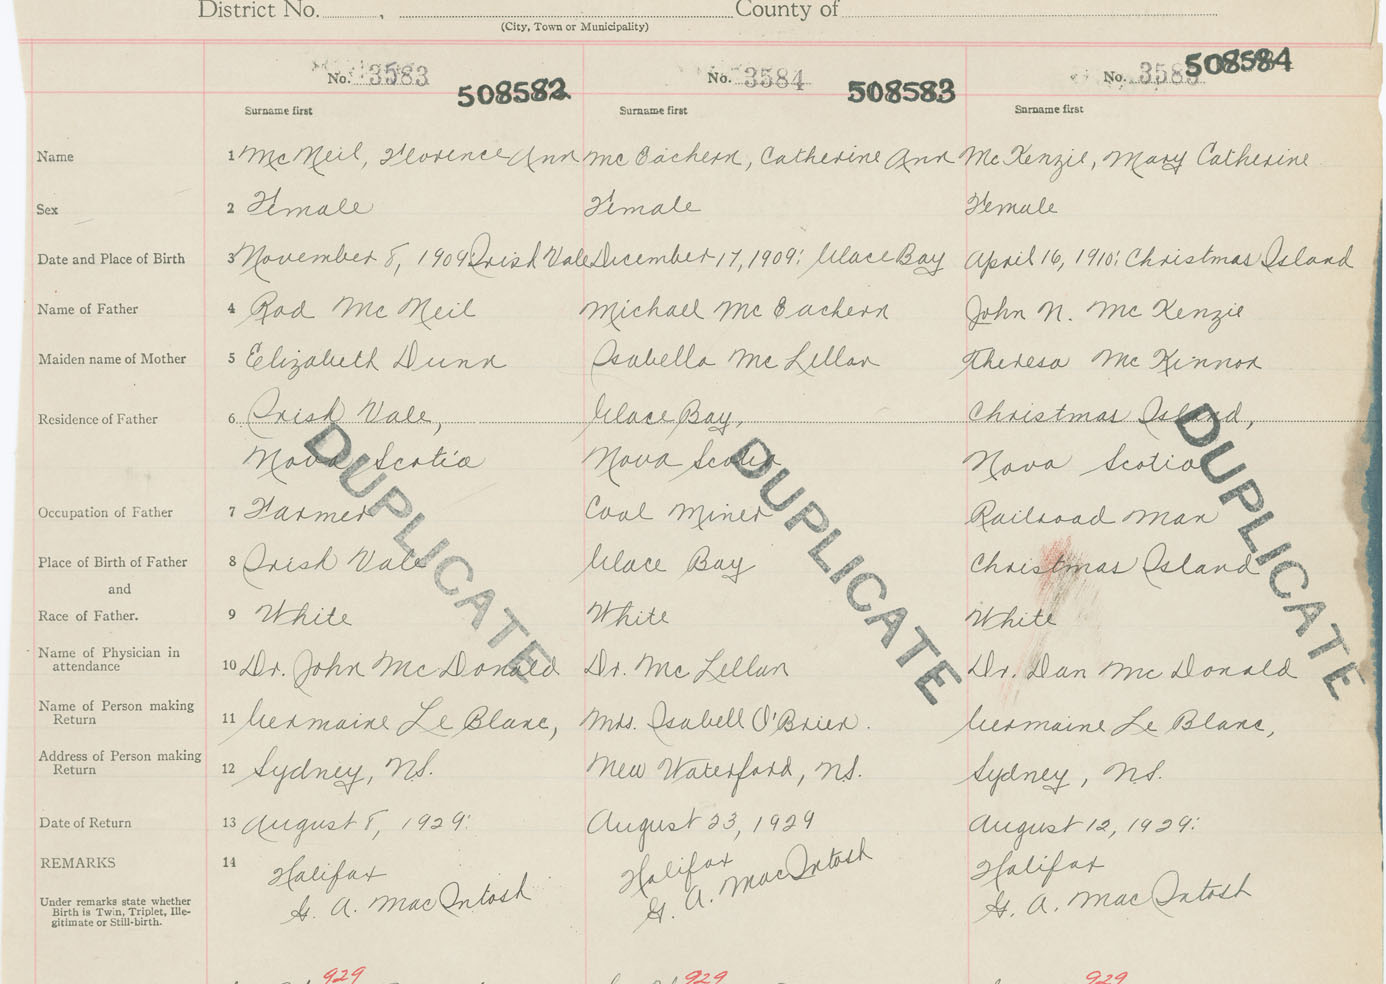 District No. , County of
(City, Town or Municipality)
No. 3583 508582 No. 3584 508583 No. 508584
Surname first Surname first Surname first
Name 1 McNeil, Florence Ann McEachern, Catherine Ann McKenzie, Mary Catherine
Sex 2 Female Female Female
Date and Place of Birth 3 November 8, 1909: Irish Vale December 17, 1909: Glace Bay April 16, 1910: Christmas Island
Name of Father 4 Rod McNeil Michael McEachern John N. McKenzie
Maiden name of Mother 5 Elizabeth Dunn Isabella McLellan Theresa McKinnon
Residence of Father 6 Irish Vale, Glace Bay, Christmas Island,
Nova Scotia Nova Scotia Nova Scotia
DUPLICATE DUPLICATE DUPLICATE
Occupation of Father 7 Farmer Coal Miner Railroad Man
Place of Birth of Father 8 Irish Vale Glace Bay Christmas Island
and
Race of Father. 9 White White White
Name of Physician in
attendance 10 Dr. John McDonald Dr. McLellan Dr. Dan McDonald
Name of Person making
Return 11 Germaine LeBlanc, Mrs. Isabell O'Brien. Germaine LeBlanc,
Address of Person making
Return 12 Sydney, N.S. New Waterford, N.S. Sydney, N.S.
Date of Return 13 August 8, 1929: August 23, 1929 August 12, 1929:
REMARKS 14 Halifax Halifax Halifax
G. A. MacIntosh G. A. MacIntosh G. A. MacIntosh
Under remarks state whether
Birth is Twin, Triplet, Ille-
gitimate or Still-birth.
929 929 929